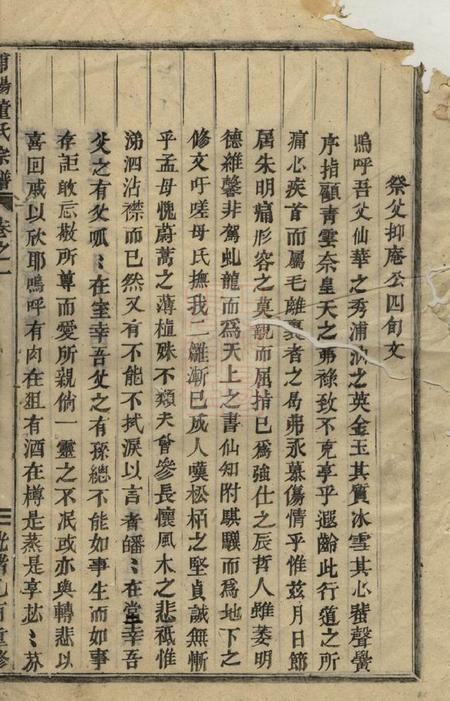 祭父抑庵公四旬文
嗚呼吾父仙華之秀浦汭之英金玉其質冰雪其心蜚聲黌
序指顧青雲奈皇天之弗祿致不克享乎遐齡此行道之所
痛心疾首而屬毛離裏者之曷弗永慕傷情乎惟茲月日節
届朱明痛形容之莫親而屈指已為強仕之辰哲人雖萎明
德維馨非駕虬龍而為天上之書仙知附騏驥而為地下之
修文吁嗟母氏撫我二雛漸已成人嘆松栢之堅貞誠無慚
乎孟母愧蔚蒿之薄植殊不類夫曾參長懷風木之悲祗惟
涕泗沾襟而已然又有不能不拭淚以言者皤〻在堂幸吾
父之有父呱〻在室幸吾父之有孫總不能如事生而如事
存詎敢忘敬所尊而愛所親倘一靈之不泯或亦與轉悲以
喜回戚以欣耶嗚呼有肉在俎有酒在樽是蒸是享苾〻芬
浦陽董氏宗譜 卷之一